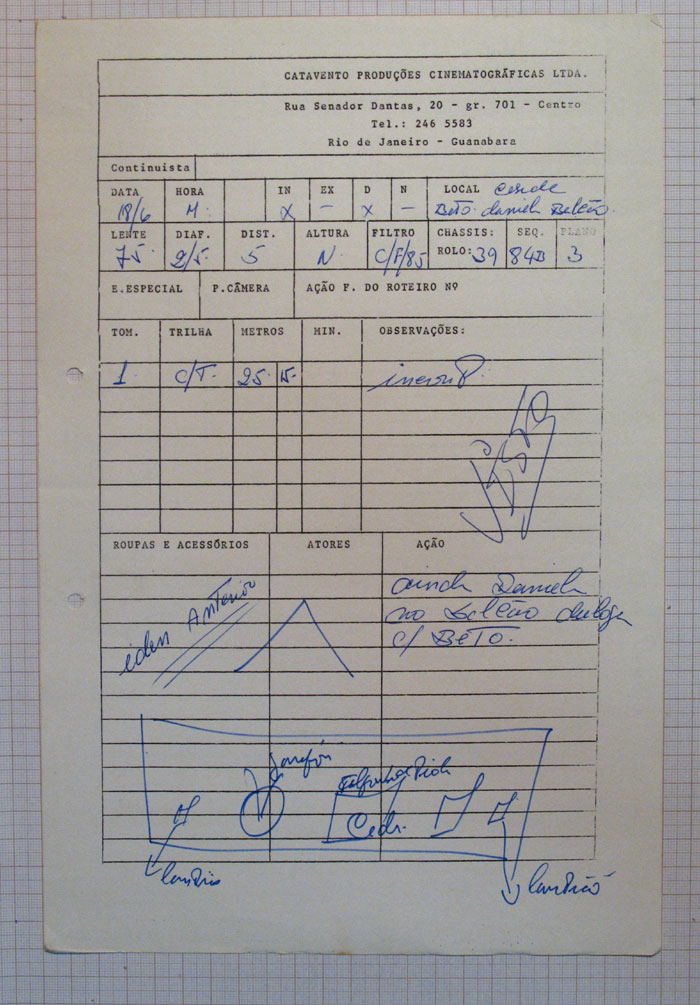 CATAVENTO PRODUÇÕES CINEMATOGRÁFICAS LTDA.
Rua Senador Dantas, 20 - gr. 701 - Centro
Tel.: 246 5583
Rio de Janeiro - Guanabara
Continuista
DATA HORA IN EX D N LOCAL
18/6 M. X - X - BETO. daniel Balcão.
LENTE DIAF. DIST. ALTURA FILTRO CHASSIS: SEQ. PLANO
75. 2/5. 5 N C/F/85 ROLO: 39 84B 3
E.ESPECIAL P.CÂMERA AÇÃO F. DO ROTEIRO Nº
TOM. TRILHA METROS MIN. OBSERVAÇÕES:
1 C/T. 25 15.
ROUPAS E ACESSÓRIOS ATORES AÇÃO
iden ANTERIOR
ainda Daniel
no Balcão dialoga
c/ BETO.